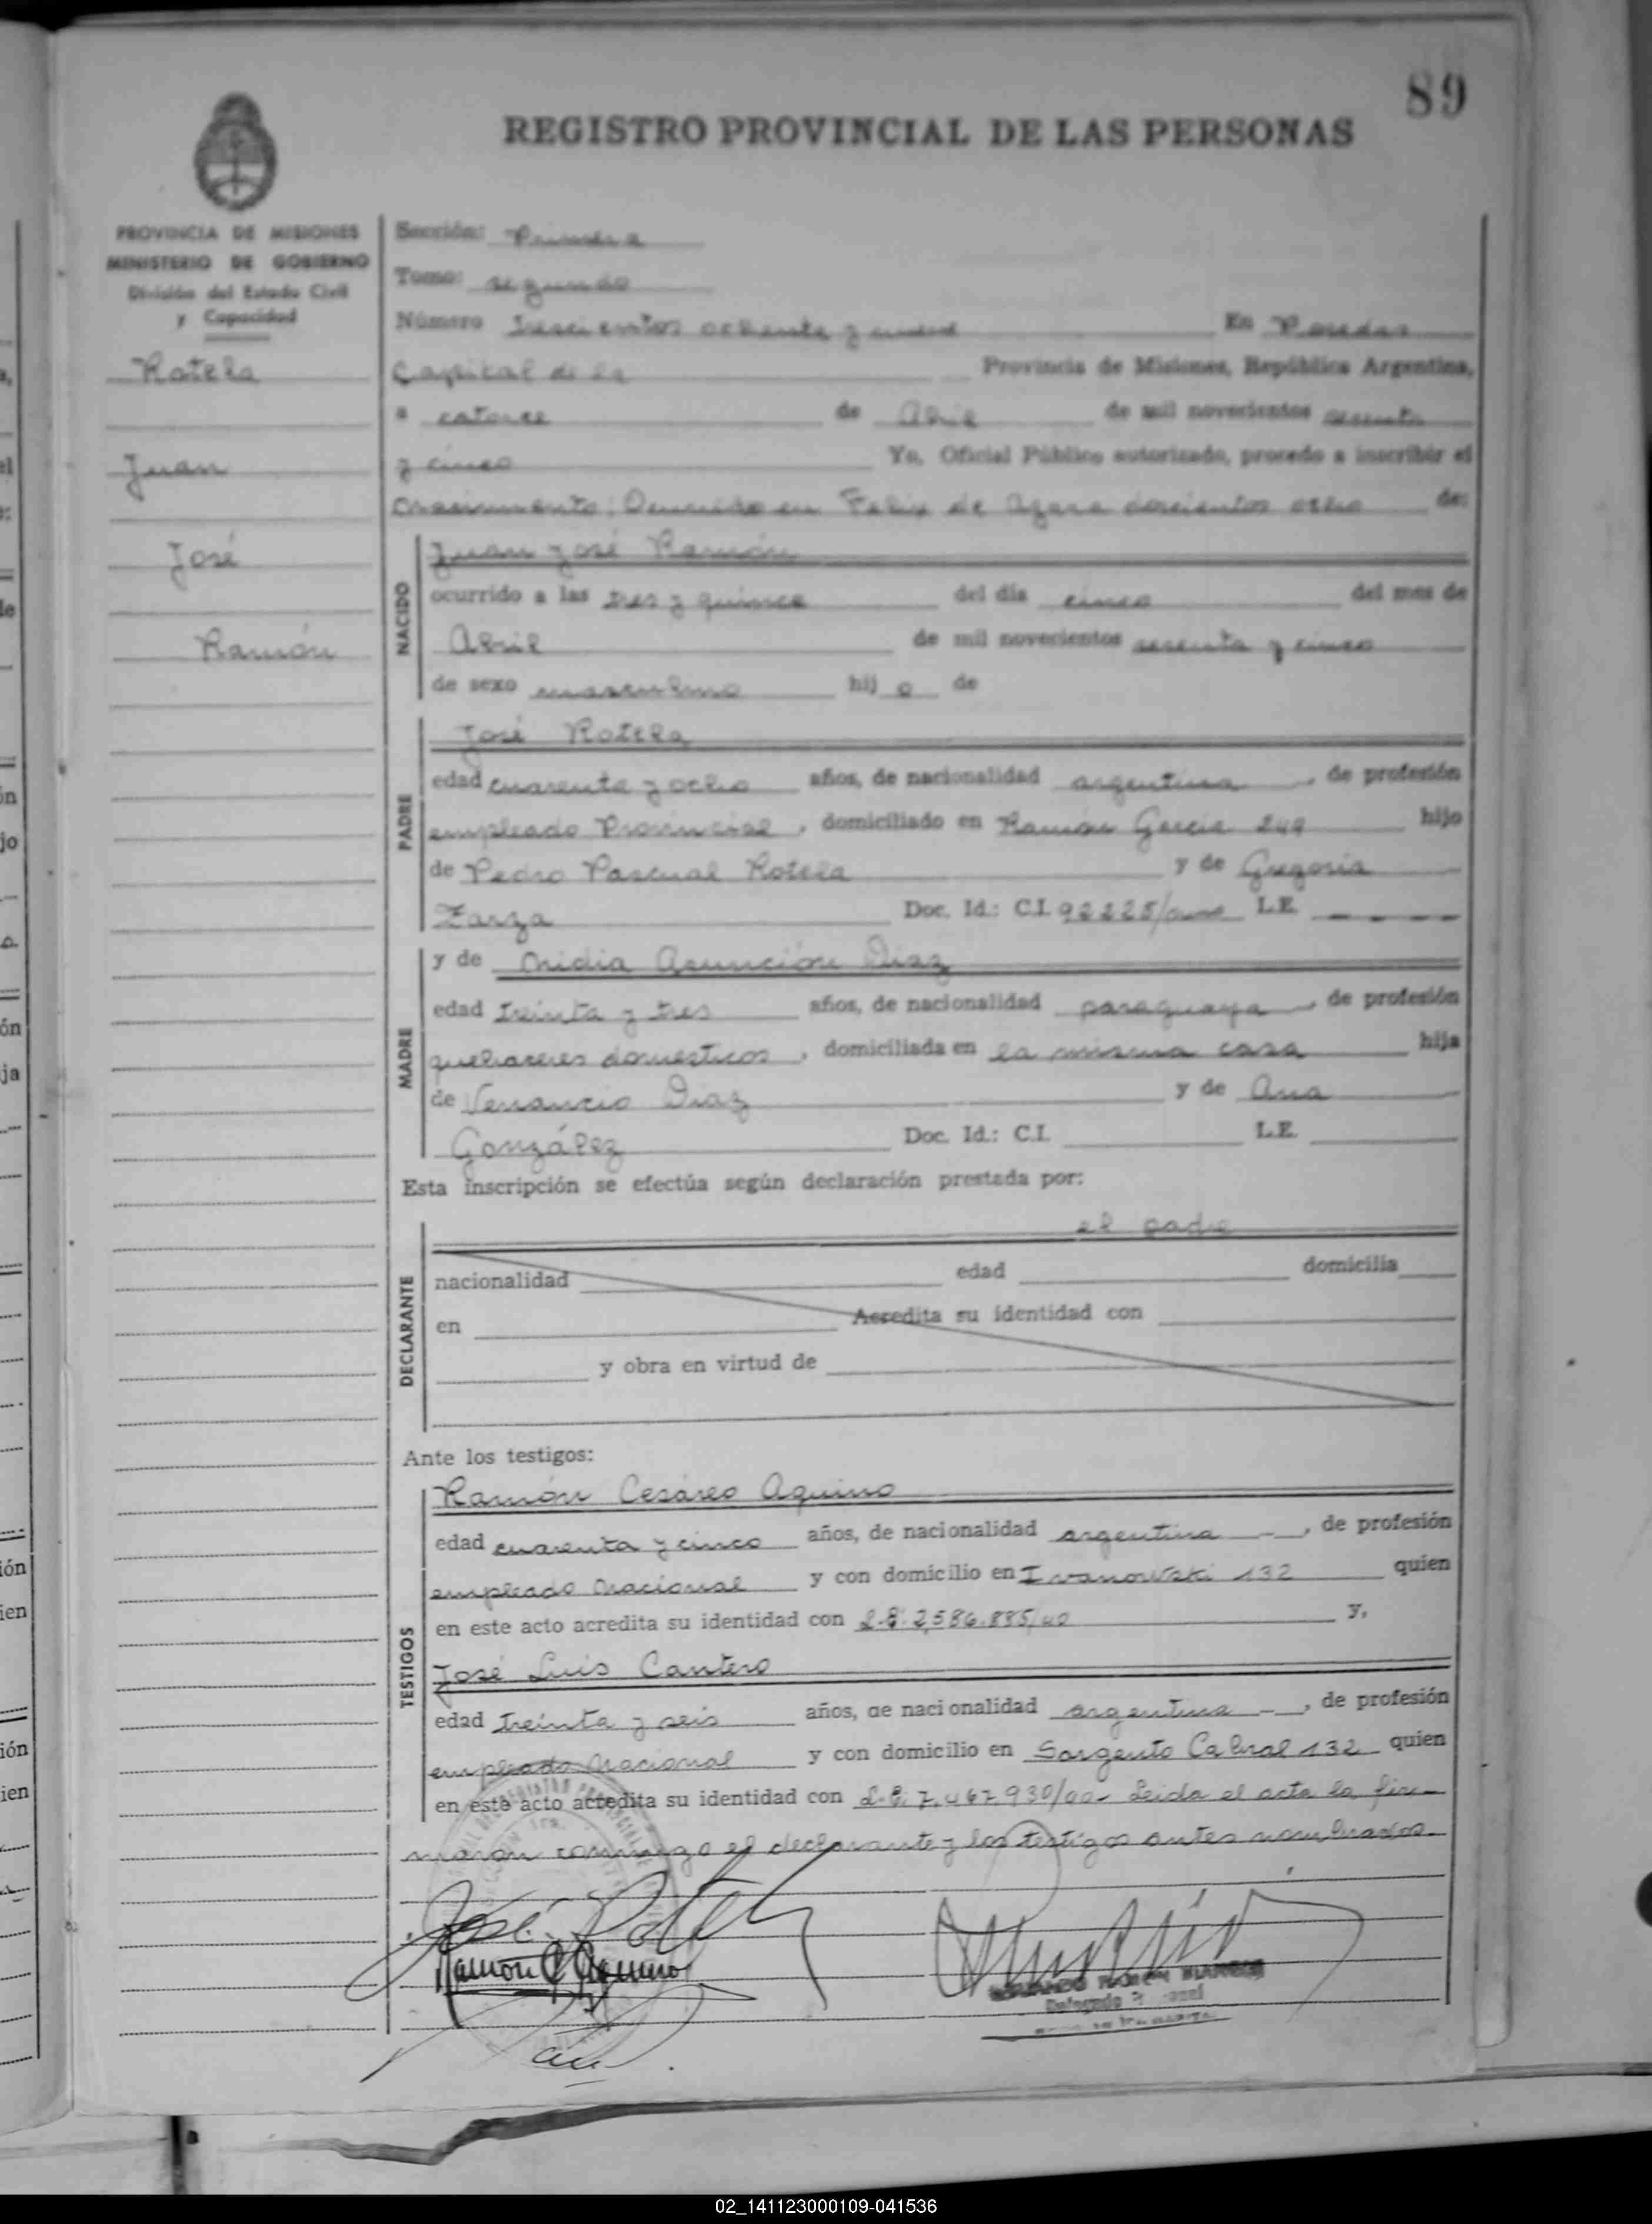 89
REGISTRO PROVINCIAL DE LAS PERSONAS
PROVINCIA DE MISIONES
MINISTERIO DE GOBIERNO
División del Estado Civil
y Capacidad
Rotela
Juan
José
Ramón
Sección: Primera
Tomo: segundo
Número trescientos ochenta y nueve En Posadas
Capital de la Provincia de Misiones, República Argentina,
a catorce de Abril de mil novecientos sesenta
y cinco Yo, Oficial Público autorizado, procedo a inscribir el
nacimiento: Ocurrido en Felix de Azara doscientos ocho de:
NACIDO
Juan José Ramón
ocurrido a las tres y quince del día cinco del mes de
Abril de mil novecientos sesenta y cinco
de sexo masculino hij o de
PADRE
José Rotela
edad cuarenta y ocho años, de nacionalidad argentina, de profesión
empleado Provincial, domiciliado en Ramón García 249 hijo
de Pedro Pascual Rotela y de Gregoria
Zarza Doc. Id.: C.I. 92225/ L.E. – – – –
MADRE
y de Nidia Asunción Diaz
edad treinta y tres años, de nacionalidad paraguaya, de profesión
quehaceres domésticos, domiciliada en la misma casa hija
de Venancio Diaz y de Ana
González Doc. Id.: C.I. L.E.
Esta inscripción se efectúa según declaración prestada por:
DECLARANTE
el padre
nacionalidad edad domicilia
en Acredita su identidad con
y obra en virtud de
Ante los testigos:
TESTIGOS
Ramón Cesáreo Aquino
edad cuarenta y cinco años, de nacionalidad argentina –, de profesión
empleado nacional y con domicilio en Ivanowski 132 quien
en este acto acredita su identidad con L.E. 2.586.885/40 y,
José Luis Cantero
edad treinta y seis años, de nacionalidad argentina –, de profesión
empleado nacional y con domicilio en Sargento Cabral 132 quien
en este acto acredita su identidad con L.E. 7.467.930/00- Leida el acta la fir-
maron conmigo el declarante y los testigos antes nombrados.
José Rotela
Ramón C Aquino
RAMON BLANCO
Delegado
02_141123000109-041536